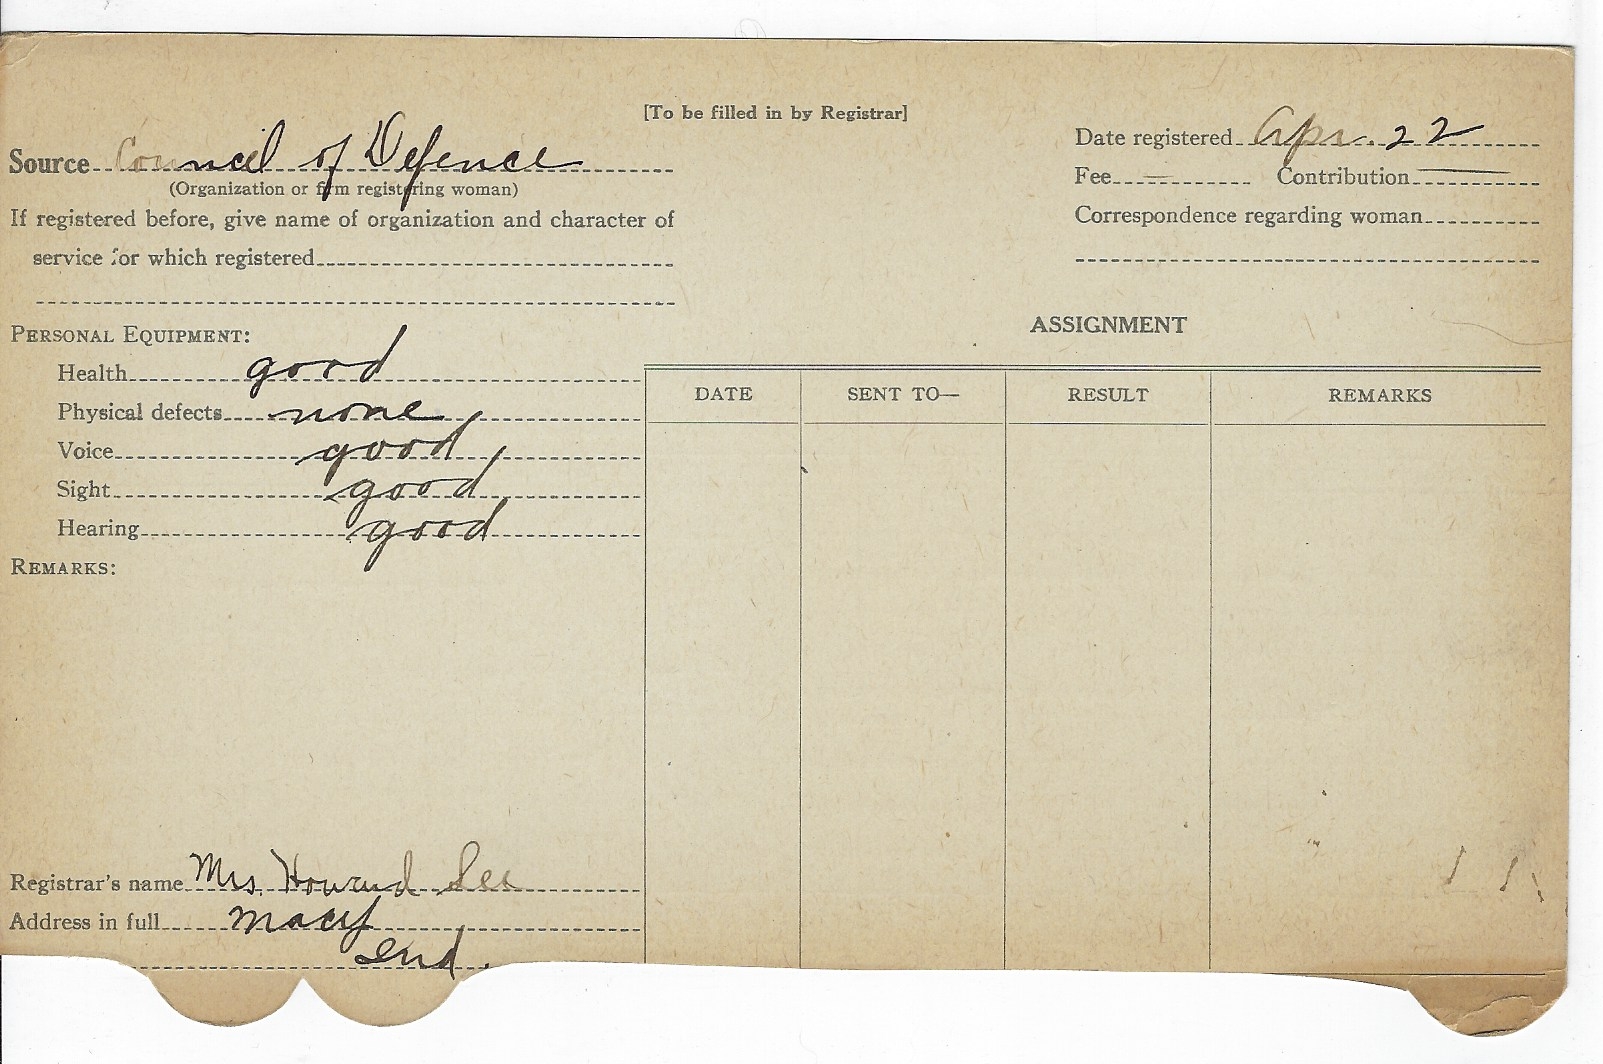 [To be filled in by Registrar]
Source Council of Defence
(Organization or firm registering woman)
If registered before, give name of organization and character of
service for which registered
Date registered Apr. 22
Fee — Contribution —
Correspondence regarding woman
PERSONAL EQUIPMENT:
Health good
Physical defects none
Voice good
Sight good
Hearing good
REMARKS:
ASSIGNMENT
DATE SENT TO— RESULT REMARKS
Registrar's name Mrs. Howard Lee
Address in full Macy
Ind.